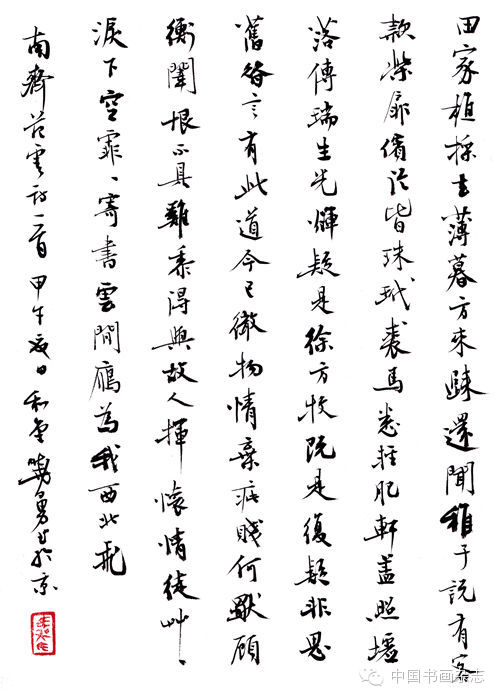 田家樵採去薄暮方來歸還聞稚子說有客
款柴扉儐從皆珠玳裘馬悉輕肥軒蓋照墟
落傳瑞生光煇疑是徐方牧既是復疑非思
舊昔言有此道今已微物情棄疵賤何獨顧
衡闈恨不具雞黍得與故人揮懷情徒艸、
淚下空霏、寄書雲間鴈為我西北飛
南齊范雲詩一首甲午夏日和堂曉勇書於京
中国书画杂志